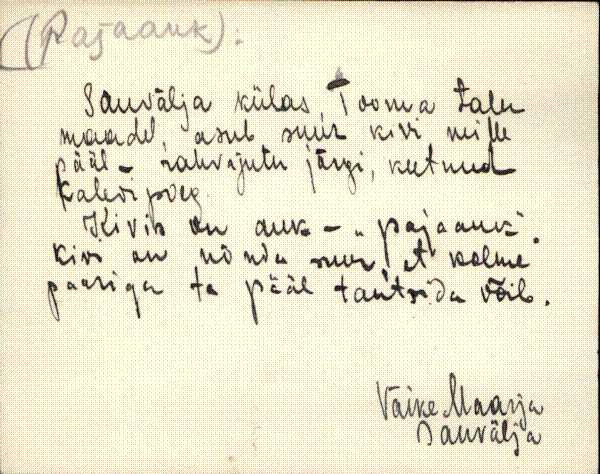 (Pajaauk):
Sauvälja külas, Tooma talu
maadel, asub suur kivi mille
pääl - rahvajutu järgi, keetnud
Kalevipoeg.
Kivis on auk - "pajaauk".
Kivi on nõnda suur, et kolme
paariga ta pääl tantsida võib.
Väike Maarja
Sauvälja